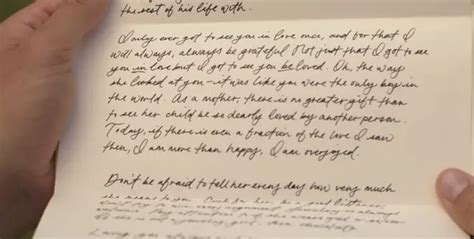 the rest of his life with.
I only ever got to see you in love once, and for that I
will always, always be grateful. Not just that I got to see
you in love but I got to see you be loved. Oh, the way
she looked at you—it was like you were the only boy in
the world. As a mother, there is no greater gift than
to see her child be so dearly loved by another person.
Today, if there is even a fraction of the love I saw
then, I am more than happy, I am overjoyed.
Don't be afraid to tell her every day how very much
she means to you. be a good listener,